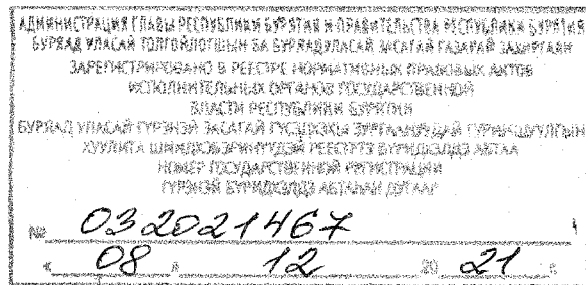 АДМИНИСТРАЦИЯ ГЛАВЫ РЕСПУБЛИКИ БУРЯТИЯ И ПРАВИТЕЛЬСТВА РЕСПУБЛИКИ БУРЯТИЯ
БУРЯАД УЛАСАЙ ТОЛГОЙЛОГШЫН БА БУРЯАД УЛАСАЙ ЗАСАГАЙ ГАЗАРАЙ ЗАХИРГААН
ЗАРЕГИСТРИРОВАНО В РЕЕСТРЕ НОРМАТИВНЫХ ПРАВОВЫХ АКТОВ
ИСПОЛНИТЕЛЬНЫХ ОРГАНОВ ГОСУДАРСТВЕННОЙ
ВЛАСТИ РЕСПУБЛИКИ БУРЯТИЯ
БУРЯАД УЛАСАЙ ГҮРЭНЭЙ ЗАСАГАЙ
РЕЕСТРТЭ БҮРИДХЭЛДЭ АБТАА
НОМЕР ГОСУДАРСТВЕННОЙ РЕГИСТРАЦИИ
ГҮРЭНЭЙ БҮРИДХЭЛДЭ АБТАҺАН ДУГААР
№ 032021467
« 08 » 12 20 21 г.